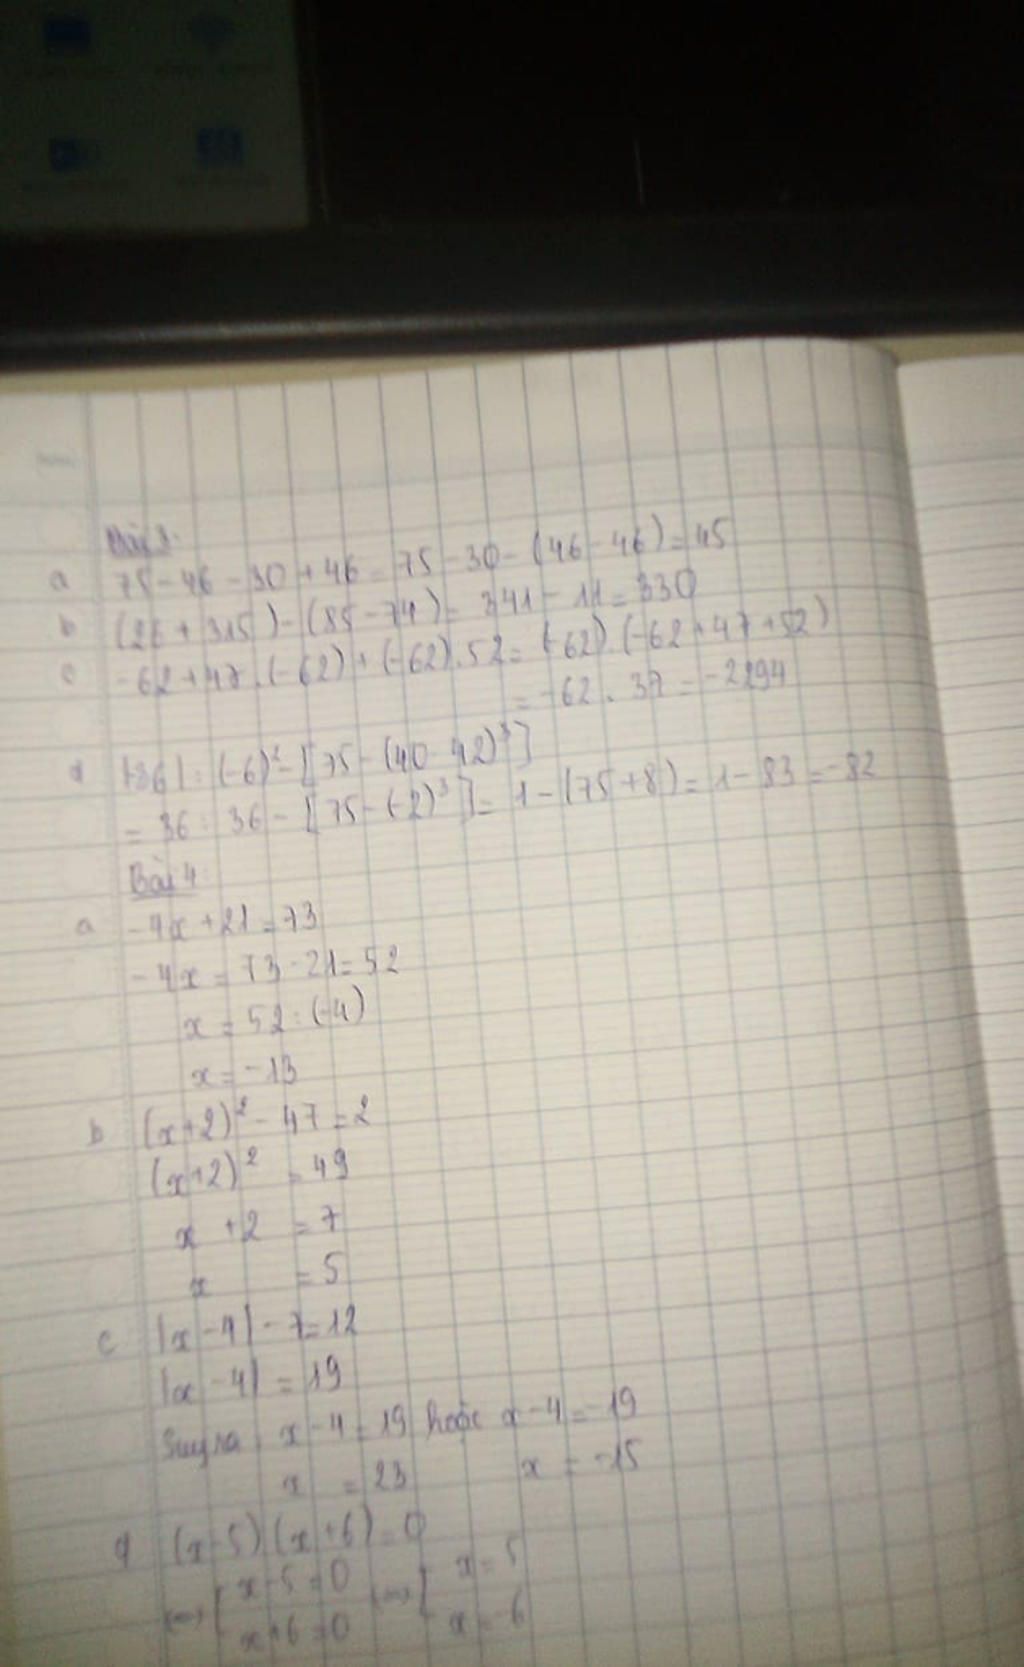 Bài 3:
a 75 - 46 - 30 + 46 = 75 - 30 - (46 - 46) = 45
b (26 + 315) - (85 - 74) = 341 - 11 = 330
c -62 + 47 . (-62) + (-62) . 52 = (-62) . (-62 + 47 + 52)
= -62 . 37 = -2294
d |-36| : (-6)² - [75 - (40 - 42)³]
= 36 : 36 - [75 - (-2)³] = 1 - (75 + 8) = 1 - 83 = -82
Bài 4
a -4x + 21 = 73
-4x = 73 - 21 = 52
x = 52 : (-4)
x = -13
b (x+2)² - 47 = 2
(x+2)² = 49
x + 2 = 7
x = 5
c |x - 4| - 7 = 12
|x - 4| = 19
Suy ra x - 4 = 19 hoặc x - 4 = -19
x = 23 x = -15
d (x - 5) (x + 6) = 0
<=> [ x - 5 = 0 <=> [ x = 5
x + 6 = 0 x = -6